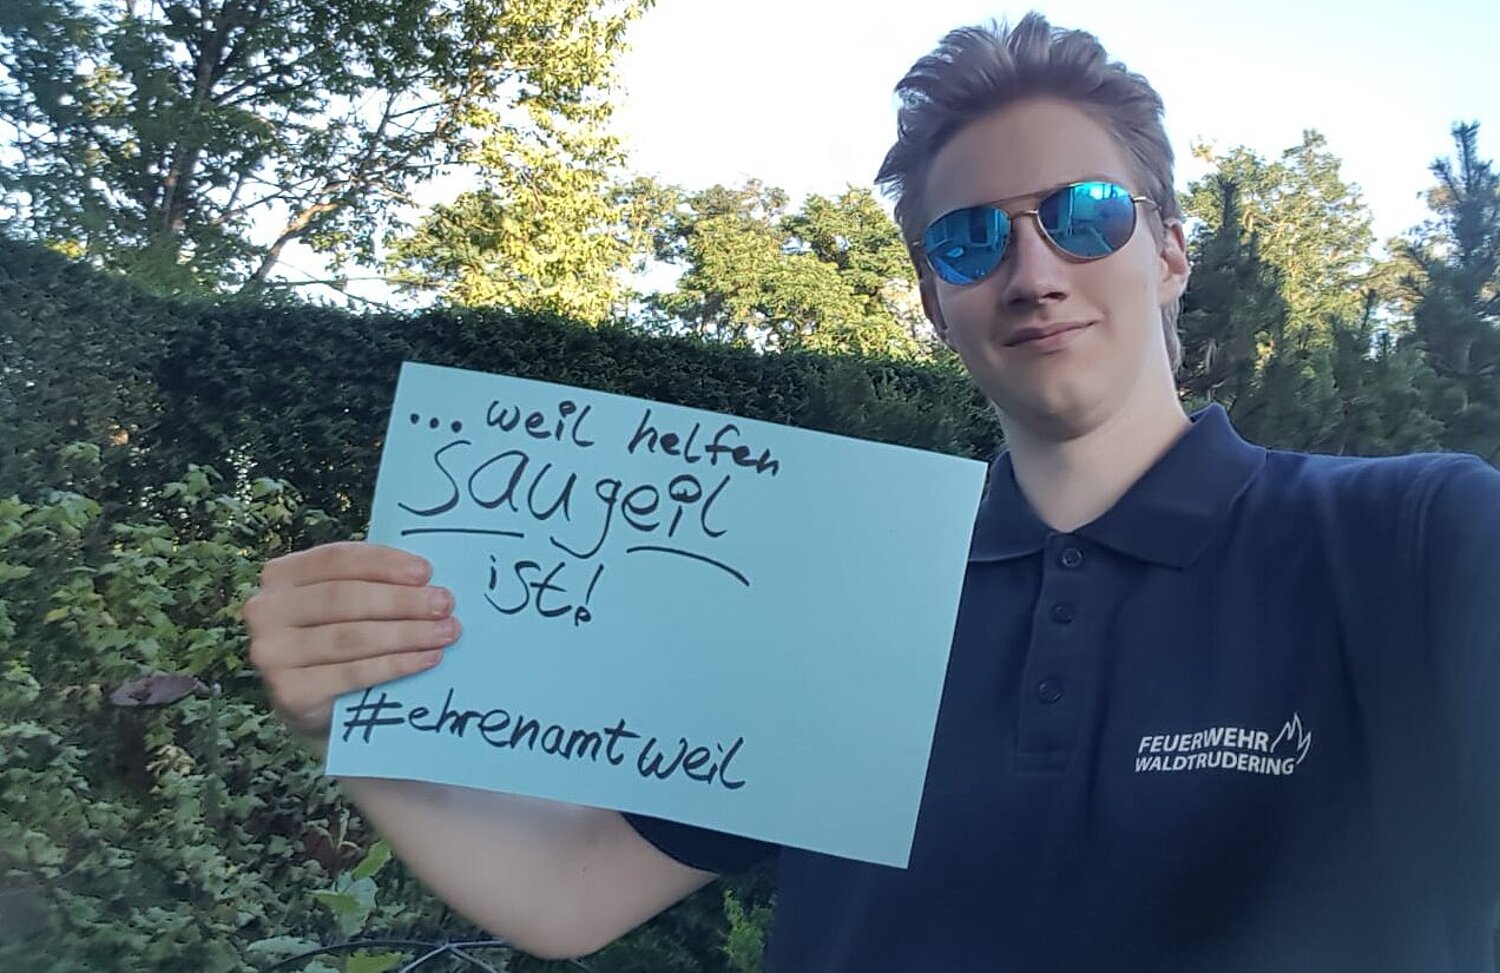 ... weil helfen
saugeil
ist!
#ehrenamtweil
FEUERWEHR
WALDTRUDERING